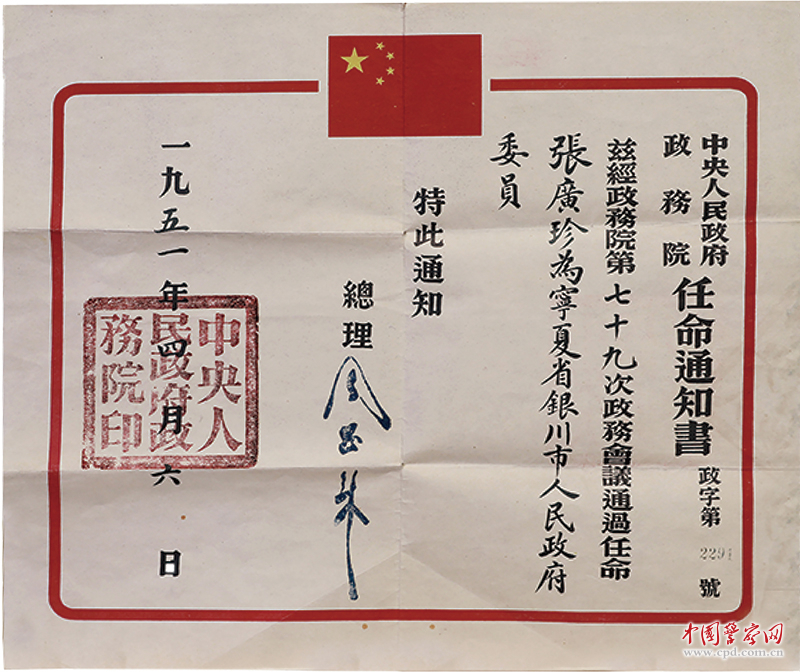 中央人民政府
政務院
任命通知書
政字第2291號
兹經政務院第七十九次政務會議通過任命
張廣珍為寧夏省銀川市人民政府
委員
特此通知
總理
周恩來
一九五一年四月六日
中央人民政府政務院印
中国警察网
www.cpd.com.cn